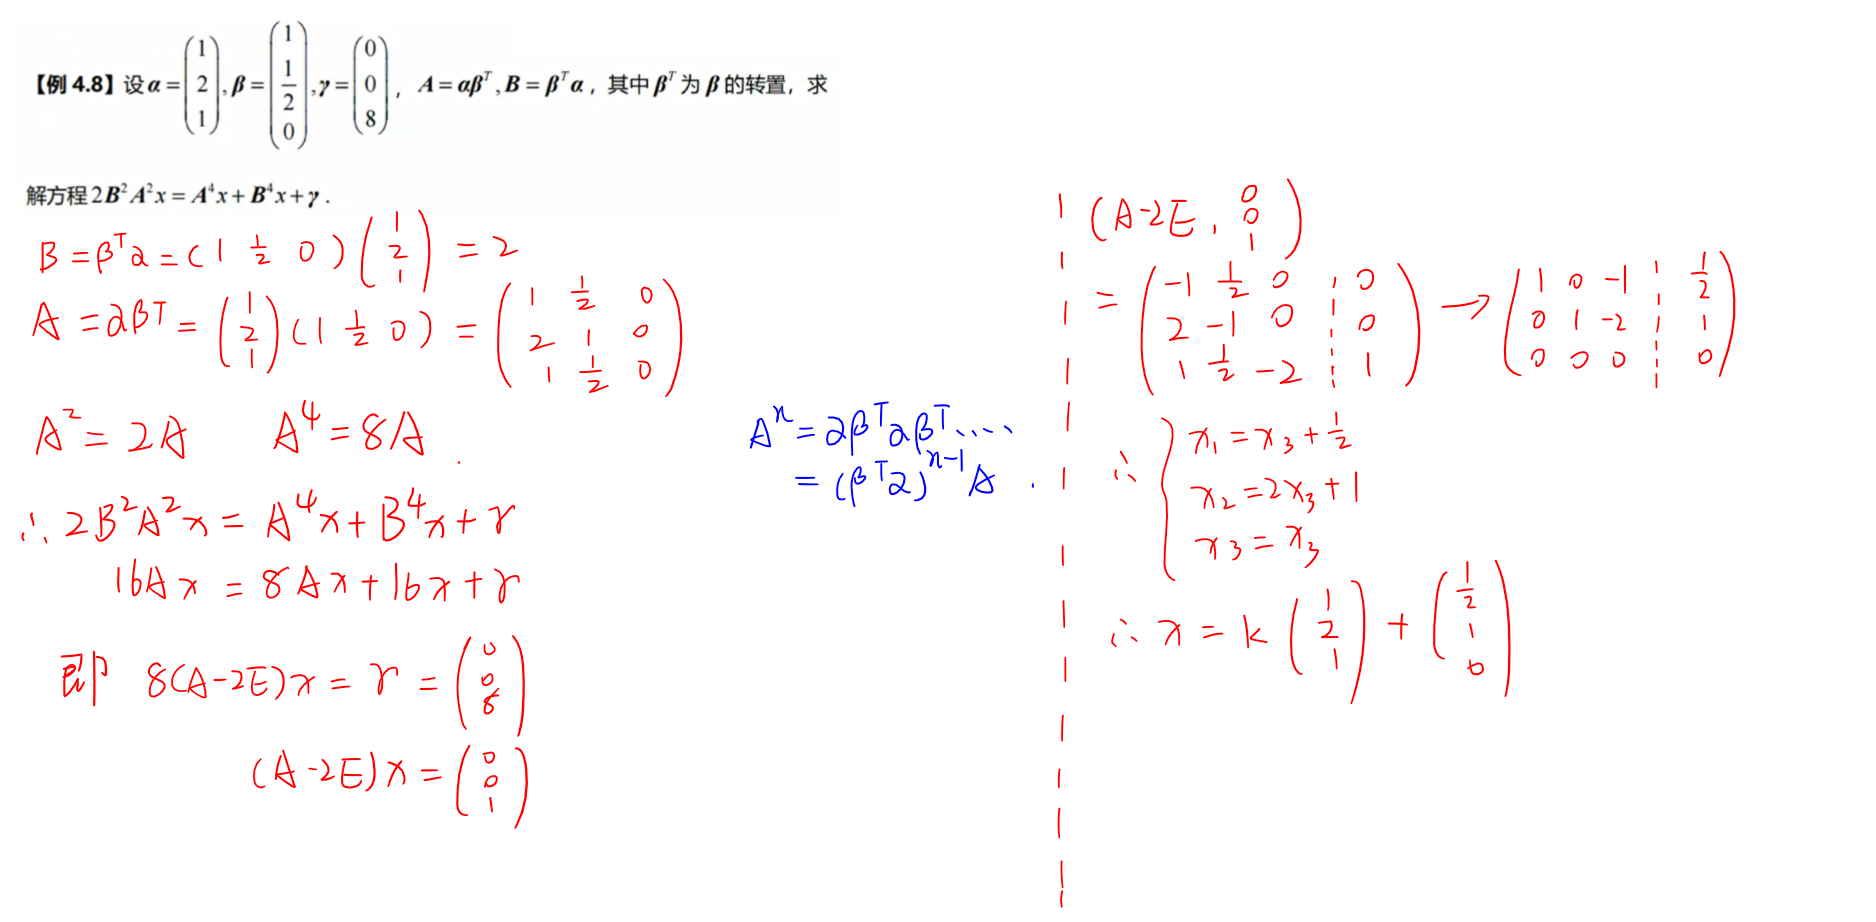 【例 4.8】设 α = (1 2 1), β = (1 1/2 0), γ = (0 0 8), A = αβᵀ, B = βᵀα, 其中 βᵀ 为 β 的转置, 求
解方程 2B²A²x = A⁴x + B⁴x + γ.
B = βᵀα = (1 1/2 0) (1 2 1) = 2
A = αβᵀ = (1 2 1) (1 1/2 0) = (1 1/2 0 2 1 0 1 1/2 0)
A² = 2A A⁴ = 8A.
∴ 2B²A²x = A⁴x + B⁴x + γ
16Ax = 8Ax + 16x + γ
即 8(A-2E)x = γ = (0 0 8)
(A-2E)x = (0 0 1)
Aⁿ = αβᵀαβᵀ····
= (βᵀα)ⁿ⁻¹ A.
(A-2E, 0 0 1)
= (-1 1/2 0 0 2 -1 0 0 1 1/2 -2 1) → (1 0 -1 1/2 0 1 -2 1 0 0 0 0)
∴ { x₁ = x₃ + 1/2
x₂ = 2x₃ + 1
x₃ = x₃
∴ x = k (1 2 1) + (1/2 1 0)